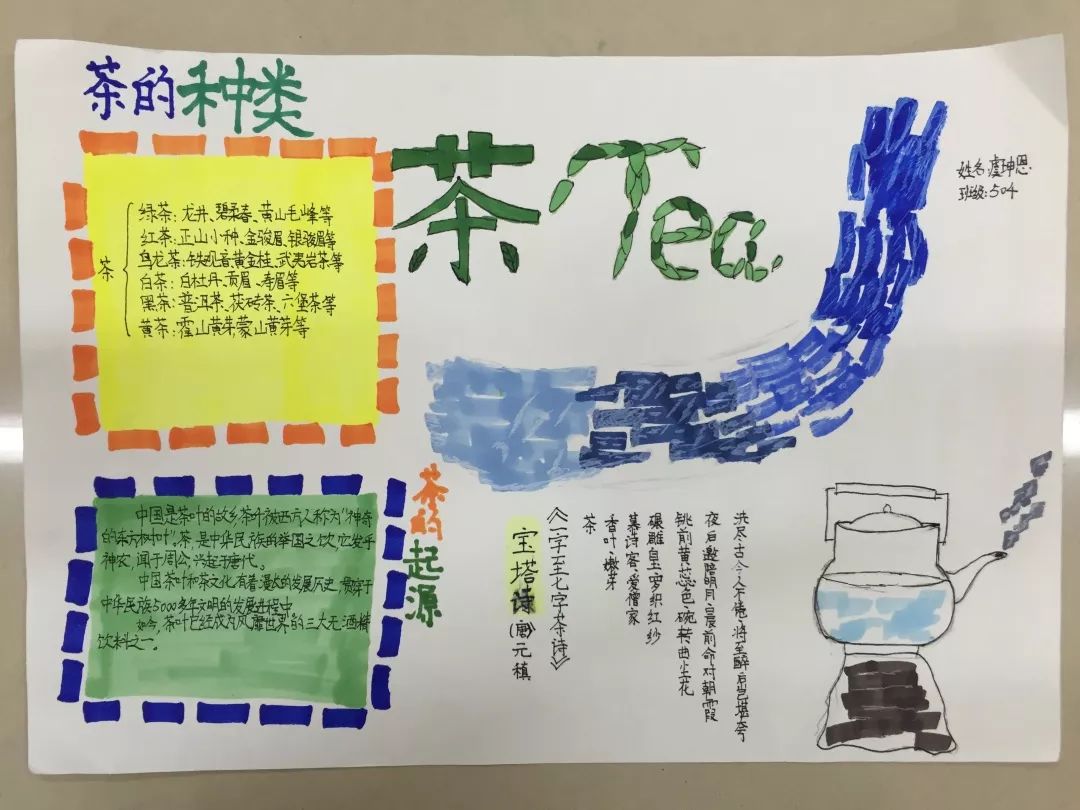 茶的种类
茶
绿茶:龙井、碧柔春、黄山毛峰等
红茶:正山小种、金骏眉、银骏眉等
乌龙茶:铁观音黄金桂、武夷岩茶等
白茶:白牡丹、贡眉、寿眉等
黑茶:普洱茶、茯砖茶、六堡茶等
黄茶:霍山黄芽,蒙山黄芽等
茶Tea
姓名:虞坤恩
班级:504
茶的起源
中国是茶叶的故乡茶叶被西方人称为"神奇
的东方树叶",茶,是中华民族的举国之饮,它发乎
神农,闻于周公,兴起于唐代。
中国茶叶和茶文化,有着漫长的发展历史,贯穿于
中华民族5000多年文明的发展进程中
如今,茶叶已经成为风靡世界的三大无酒精
饮料之一。
宝塔诗(唐)元稹
《一字至七字茶诗》
茶
香叶、嫩芽
慕诗客、爱僧家
碾雕白玉,罗织红纱
铫前黄蕊色,碗转曲尘花
夜后邀陪明月,晨前命对朝霞
洗尽古今人不倦,将至醉后岂堪夸